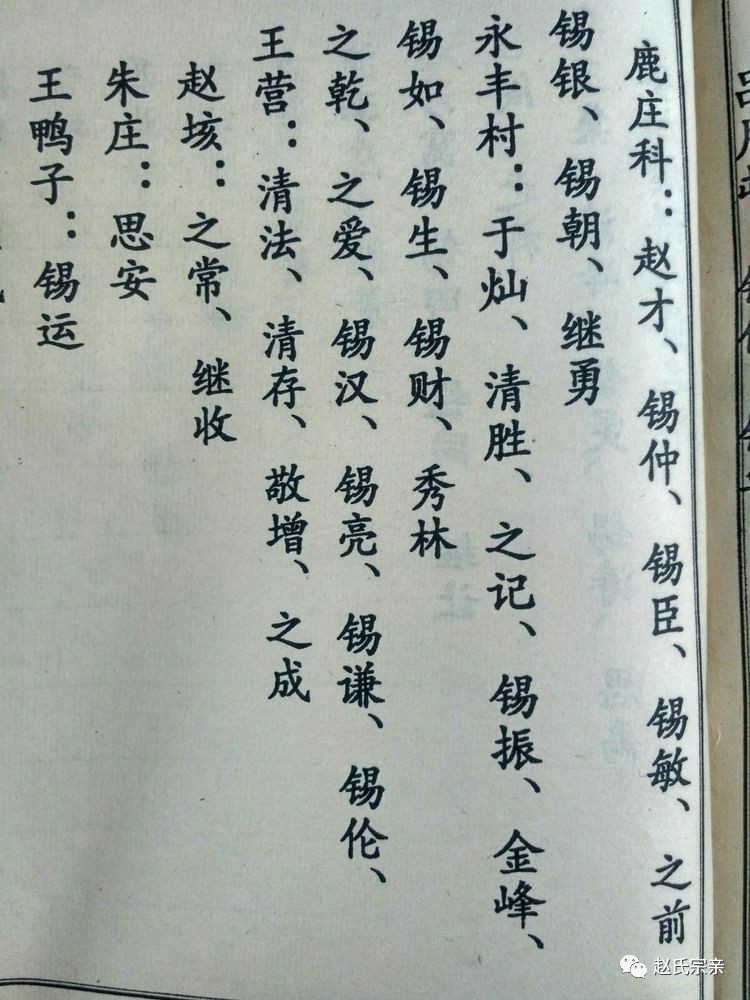 鹿庄科：赵才、锡仲、锡臣、锡敏、之前
锡银、锡朝、继勇
永丰村：于灿、清胜、之记、锡振、金峰、
锡如、锡生、锡财、秀林
之乾、之爱、锡汉、锡亮、锡谦、锡伦、
王营：清法、清存、敬增、之成
赵垓：之常、继收
朱庄：思安
王鸭子：锡运
赵氏宗亲